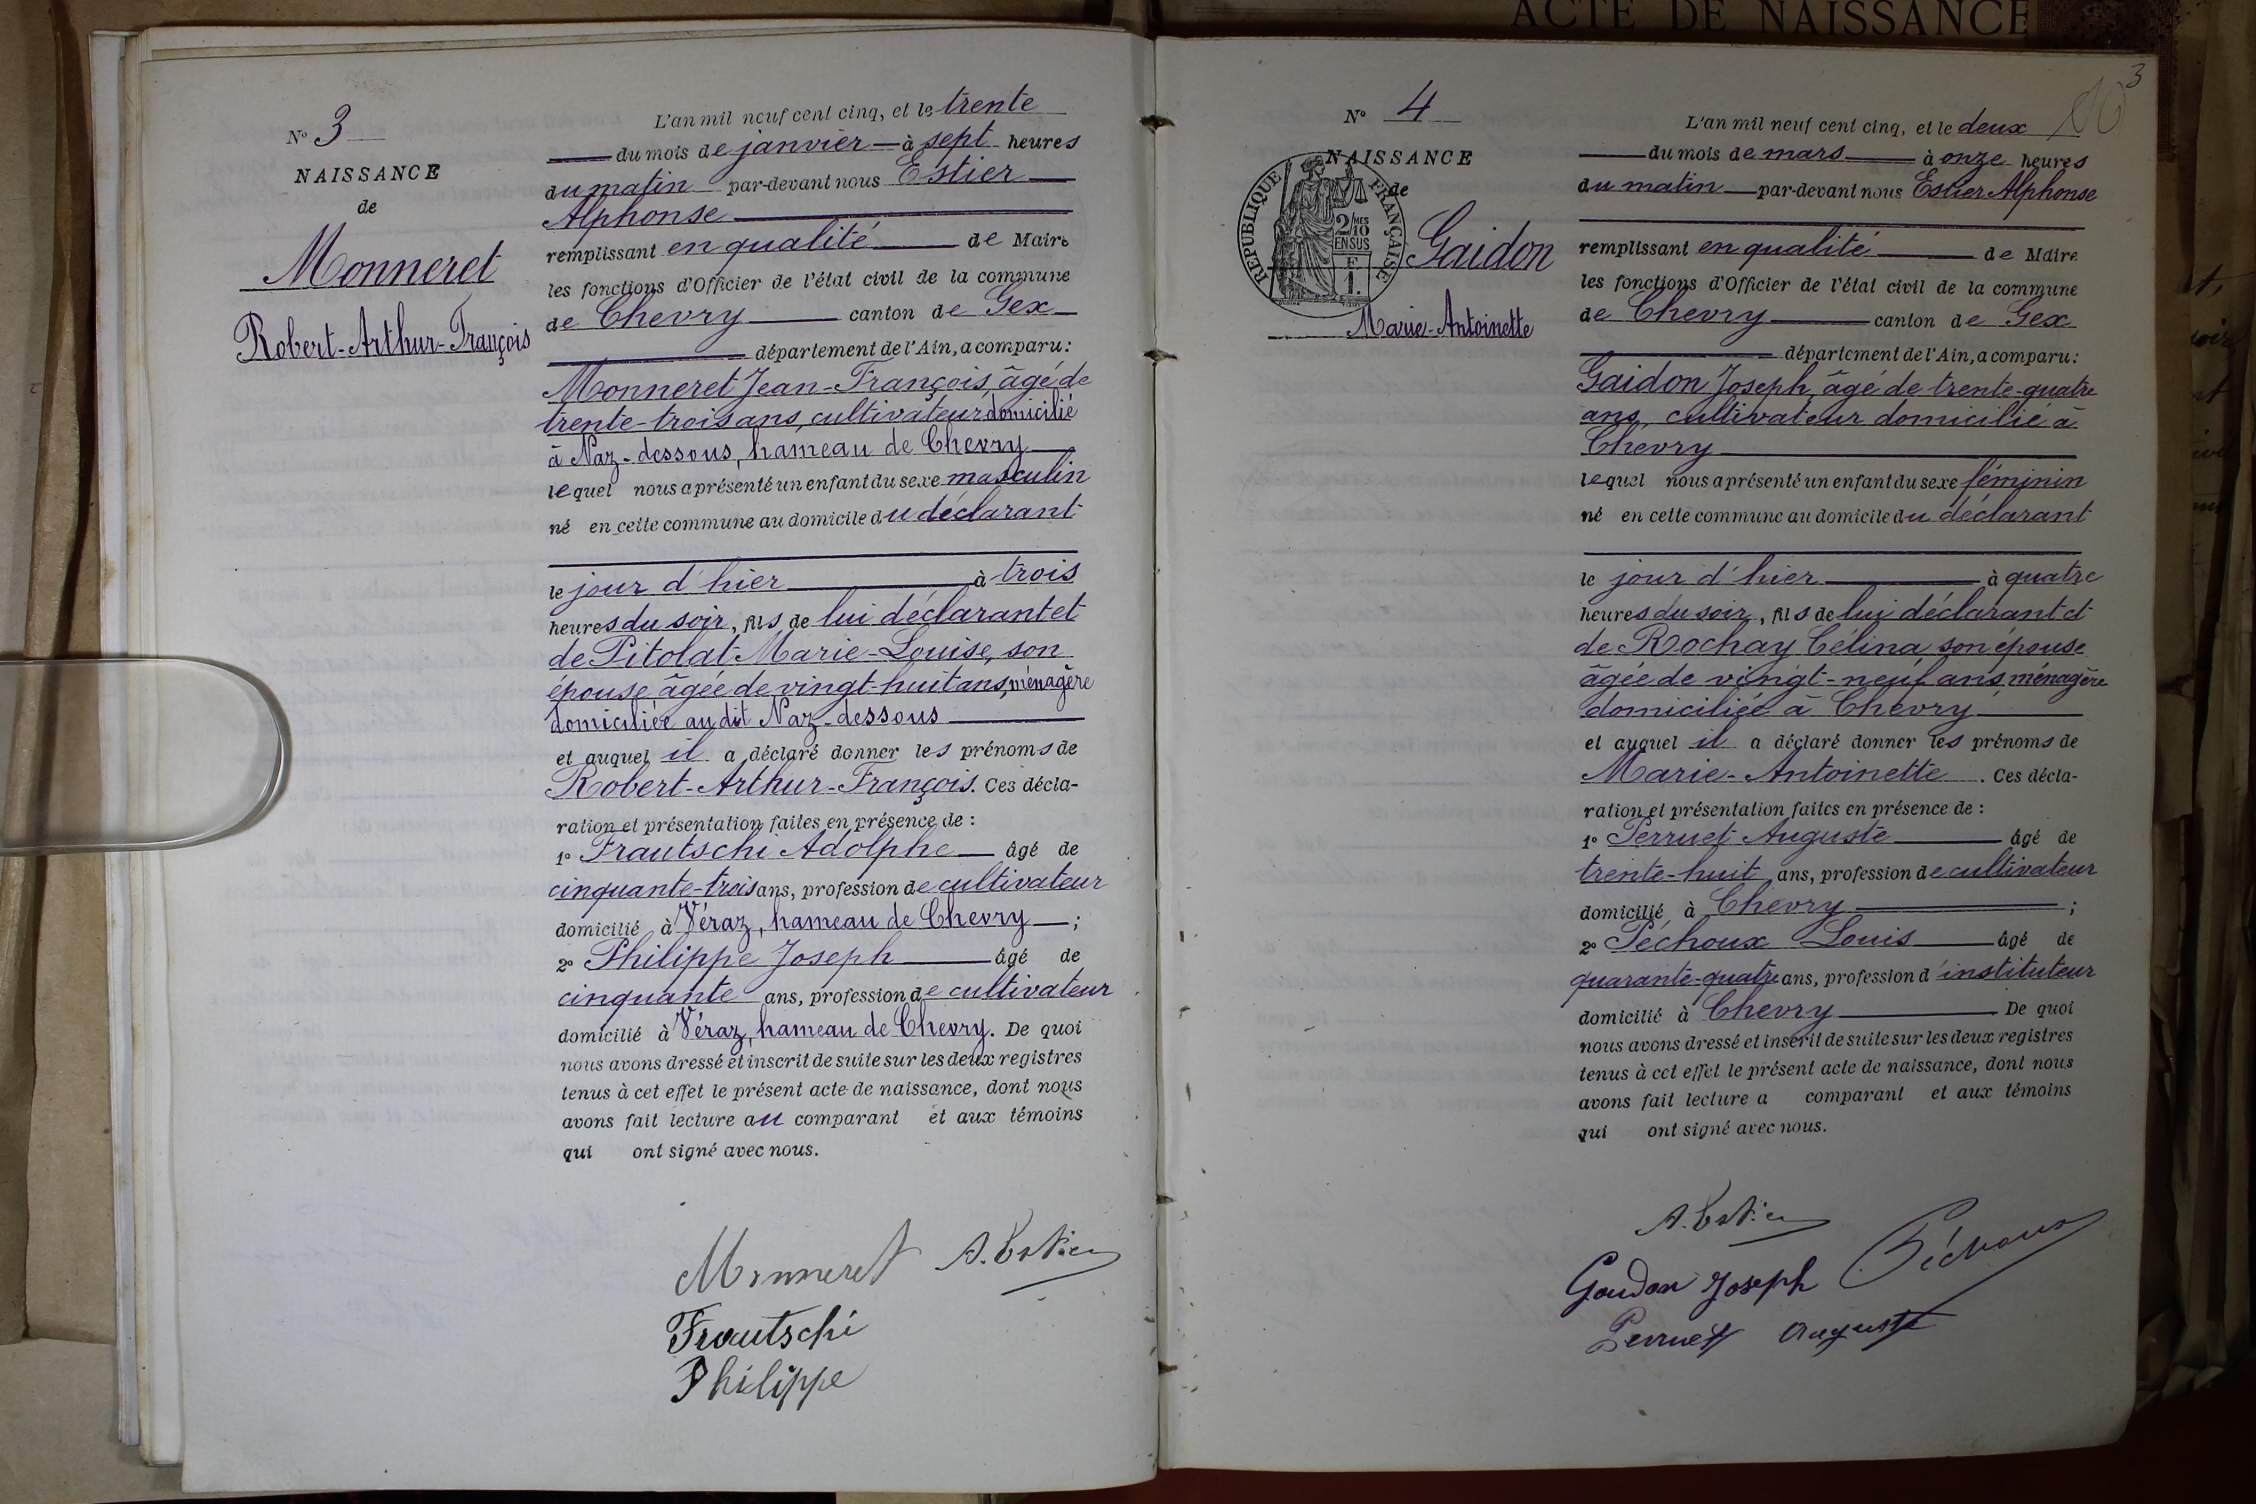 ACTE DE NAISSANCE
N° 3
NAISSANCE
de
Monneret
Robert-Arthur-François
L'an mil neuf cent cinq, et le trente
du mois de janvier à sept heures
du matin par-devant nous Estier
Alphonse
remplissant en qualité de Maire
les fonctions d'Officier de l'état civil de la commune
de Chevry canton de Gex
département de l'Ain, a comparu:
Monneret Jean-François, âgé de
trente-trois ans, cultivateur domicilié
à Naz-dessous, hameau de Chevry
lequel nous a présenté un enfant du sexe masculin
né en cette commune au domicile du déclarant
le jour d'hier à trois
heures du soir, fils de lui déclarant et
de Pitolat Marie-Louise, son
épouse âgée de vingt-huit ans, ménagère
domiciliée au dit Naz-dessous
et auquel il a déclaré donner les prénoms de
Robert-Arthur-François. Ces décla-
ration et présentation faites en présence de :
1° Frautschi Adolphe âgé de
cinquante-trois ans, profession de cultivateur
domicilié à Véraz, hameau de Chevry ;
2° Philippe Joseph âgé de
cinquante ans, profession de cultivateur
domicilié à Véraz, hameau de Chevry. De quoi
nous avons dressé et inscrit de suite sur les deux registres
tenus à cet effet le présent acte de naissance, dont nous
avons fait lecture au comparant et aux témoins
qui ont signé avec nous.
Monneret A. Estier
Frautschi
Philippe
3
N° 4
NAISSANCE
de
RÉPUBLIQUE FRANÇAISE
2/10 MES
EN SUS
F.
1.
Gaidon
Marie-Antoinette
L'an mil neuf cent cinq, et le deux
du mois de mars à onze heures
du matin par-devant nous Estier Alphonse
remplissant en qualité de Maire
les fonctions d'Officier de l'état civil de la commune
de Chevry canton de Gex
département de l'Ain, a comparu:
Gaidon Joseph, âgé de trente-quatre
ans, cultivateur domicilié à
Chevry
lequel nous a présenté un enfant du sexe féminin
né en cette commune au domicile du déclarant
le jour d'hier à quatre
heures du soir, fils de lui déclarant et
de Rochay Célina son épouse
âgée de vingt-neuf ans, ménagère
domiciliée à Chevry
et auquel il a déclaré donner les prénoms de
Marie-Antoinette. Ces décla-
ration et présentation faites en présence de :
1° Perruet Auguste âgé de
trente-huit ans, profession de cultivateur
domicilié à Chevry ;
2° Péchoux Louis âgé de
quarante-quatre ans, profession d'instituteur
domicilié à Chevry De quoi
nous avons dressé et inscrit de suite sur les deux registres
tenus à cet effet le présent acte de naissance, dont nous
avons fait lecture a comparant et aux témoins
qui ont signé avec nous.
A. Estier
Gaudon Joseph Péchoux
Perruet Auguste